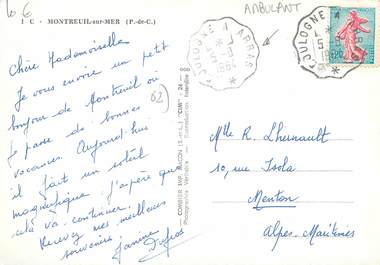 10 6
AMBULANT
I U C - MONTREUIL-sur-MER (P.-de-C.)
BOULOGNE A ARRAS
5
1964
BOULOGNE A
5
Chère Mademoiselle
Je vous envoie un petit
bonjour de Montreuil où
je passe de bonnes
vacances. Aujourd'hui
il fait un soleil
magnifique. J'espère que
cela va continuer.
Recevez mes meilleurs
souvenirs.
Janine
(62)
COMBIER IMP. MACON (S.-et-L.) "CIM"
Photographie Véritable - Reproduction Interdite
Mlle R. Lheunault
10, rue Isola
Menton
Alpes-Maritimes